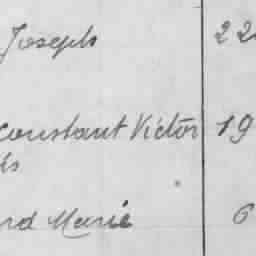 Joseph 22
Constant Victor 19
is
rd Marie 6